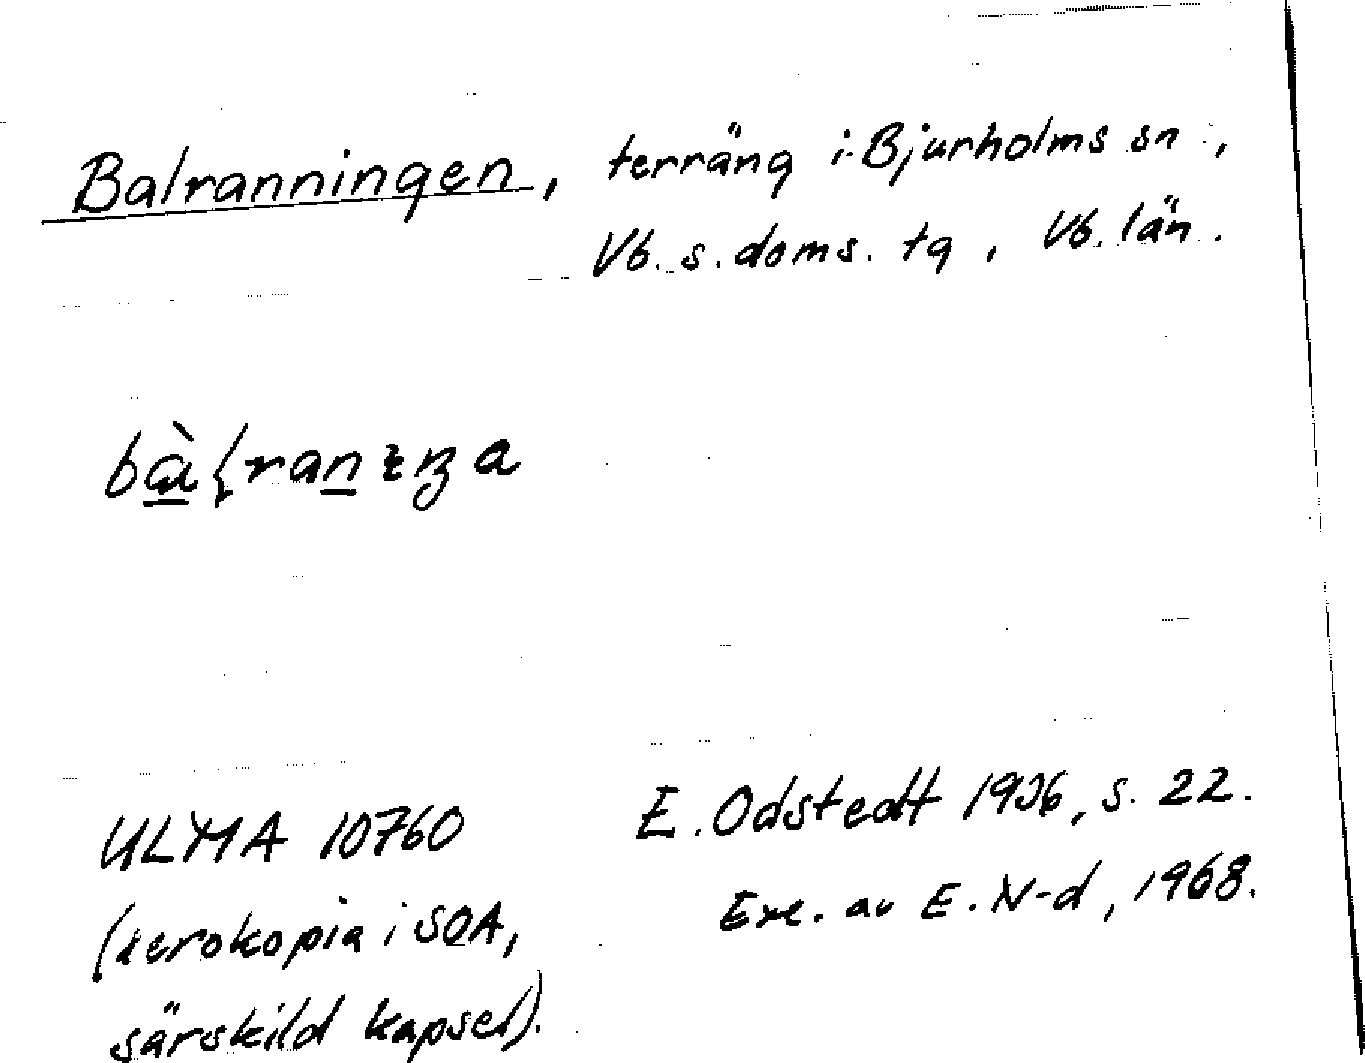 Balranningen, terräng i Bjurholms sn,
Vb. s. doms. tg, Vb. län.
ULMA 10760
(xerokopia i SOA,
särskild kapsel).
E. Odstedt 1936, s. 22.
Exc. av E. N-d, 1968.